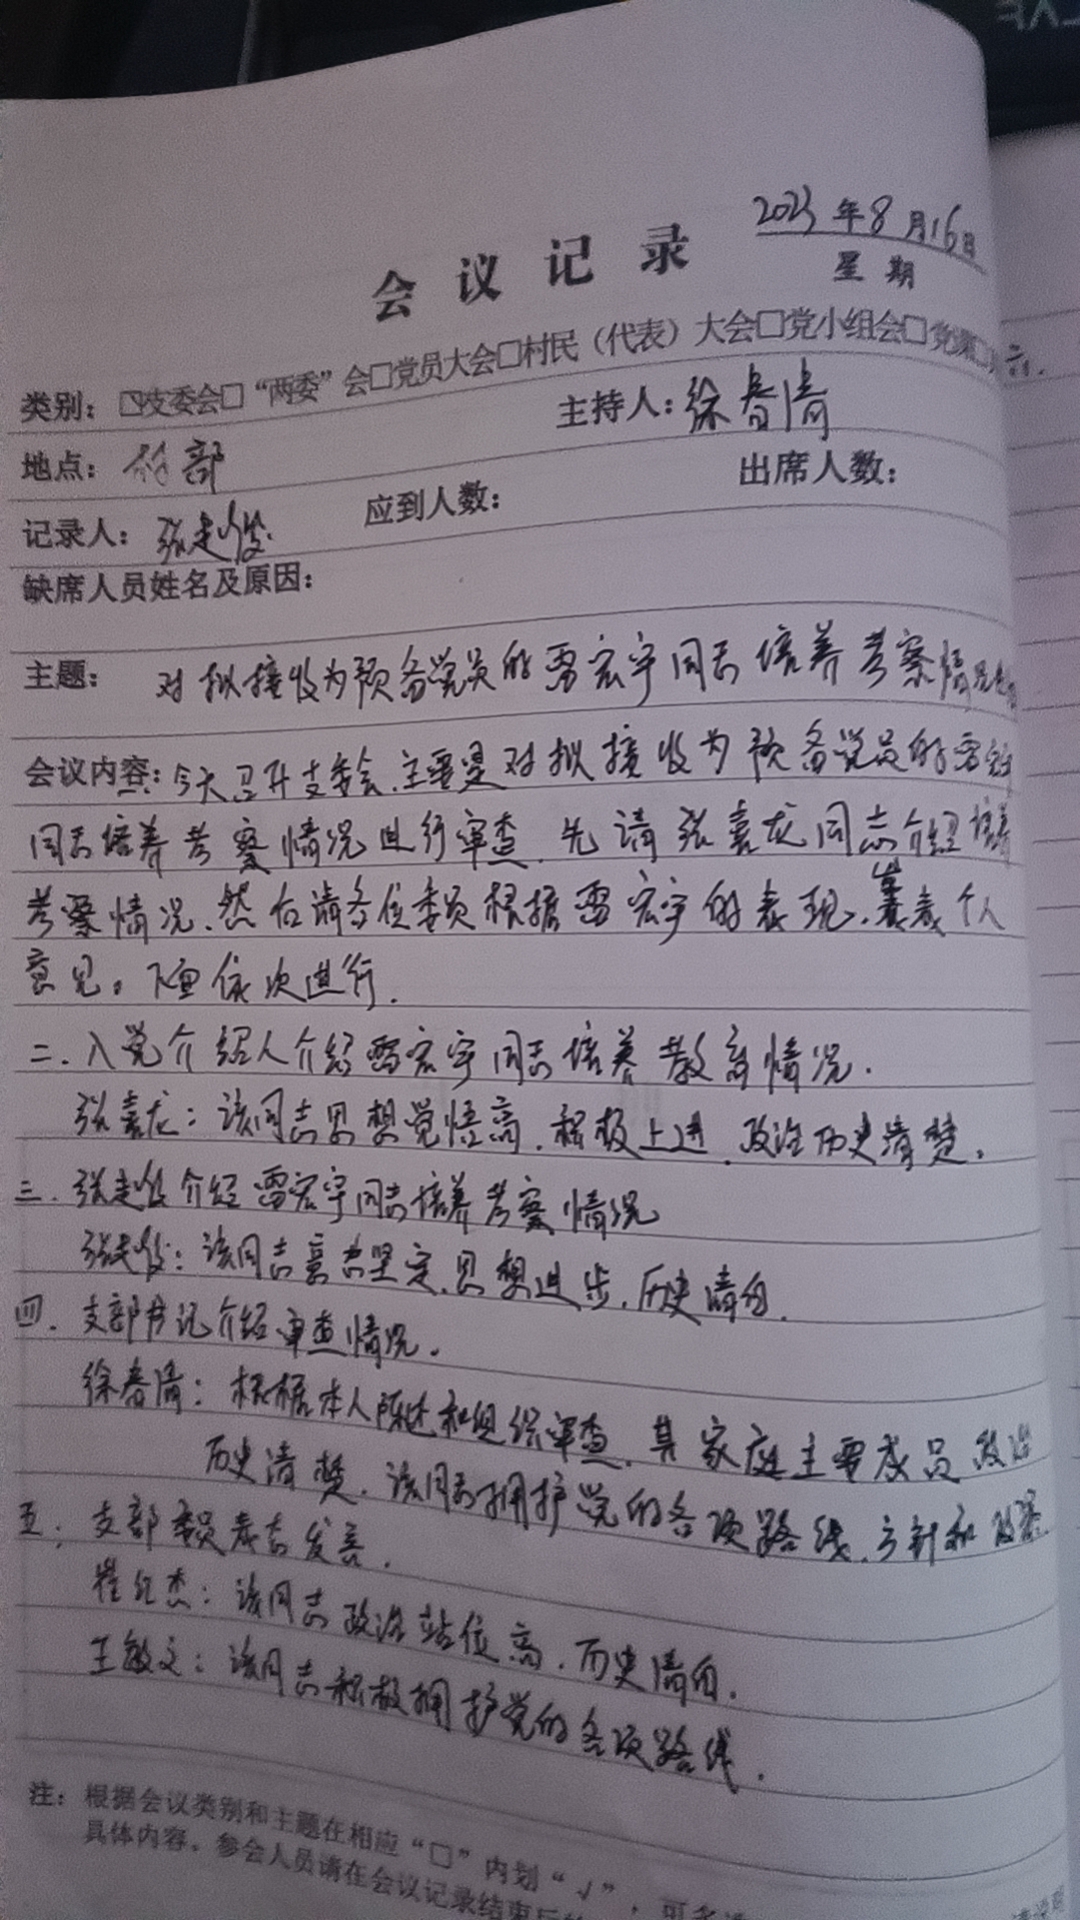 2023年8月16日
会议记录
星期
类别：☑支委会□“两委”会□党员大会□村民（代表）大会□党小组会□党课□
主持人：徐春清
地点：村部
出席人数：
应到人数：
记录人：张建俊
缺席人员姓名及原因：
主题：对拟接收为预备党员的雷宏宇同志培养考察情况
会议内容：今天召开支委会，主要是对拟接收为预备党员的雷宏宇
同志培养考察情况进行审查，先请张嘉龙同志介绍培养
考察情况，然后请各位委员根据雷宏宇的表现，发表个人
意见。下面依次进行.
二.入党介绍人介绍雷宏宇同志培养教育情况.
张嘉龙：该同志思想觉悟高，积极上进，政治历史清楚。
三.张建俊介绍雷宏宇同志培养考察情况
张建俊：该同志意志坚定，思想进步，历史清白.
四.支部书记介绍审查情况.
徐春清：根据本人陈述和组织审查，其家庭主要成员政治
历史清楚，该同志拥护党的各项路线，方针和政策.
五.支部委员表态发言.
崔纪杰：该同志政治站位高，历史清白.
王敏文：该同志积极拥护党的各项路线.
注：根据会议类别和主题在相应“□”内划“√”，可多
具体内容。参会人员请在会议记录结束后
六.